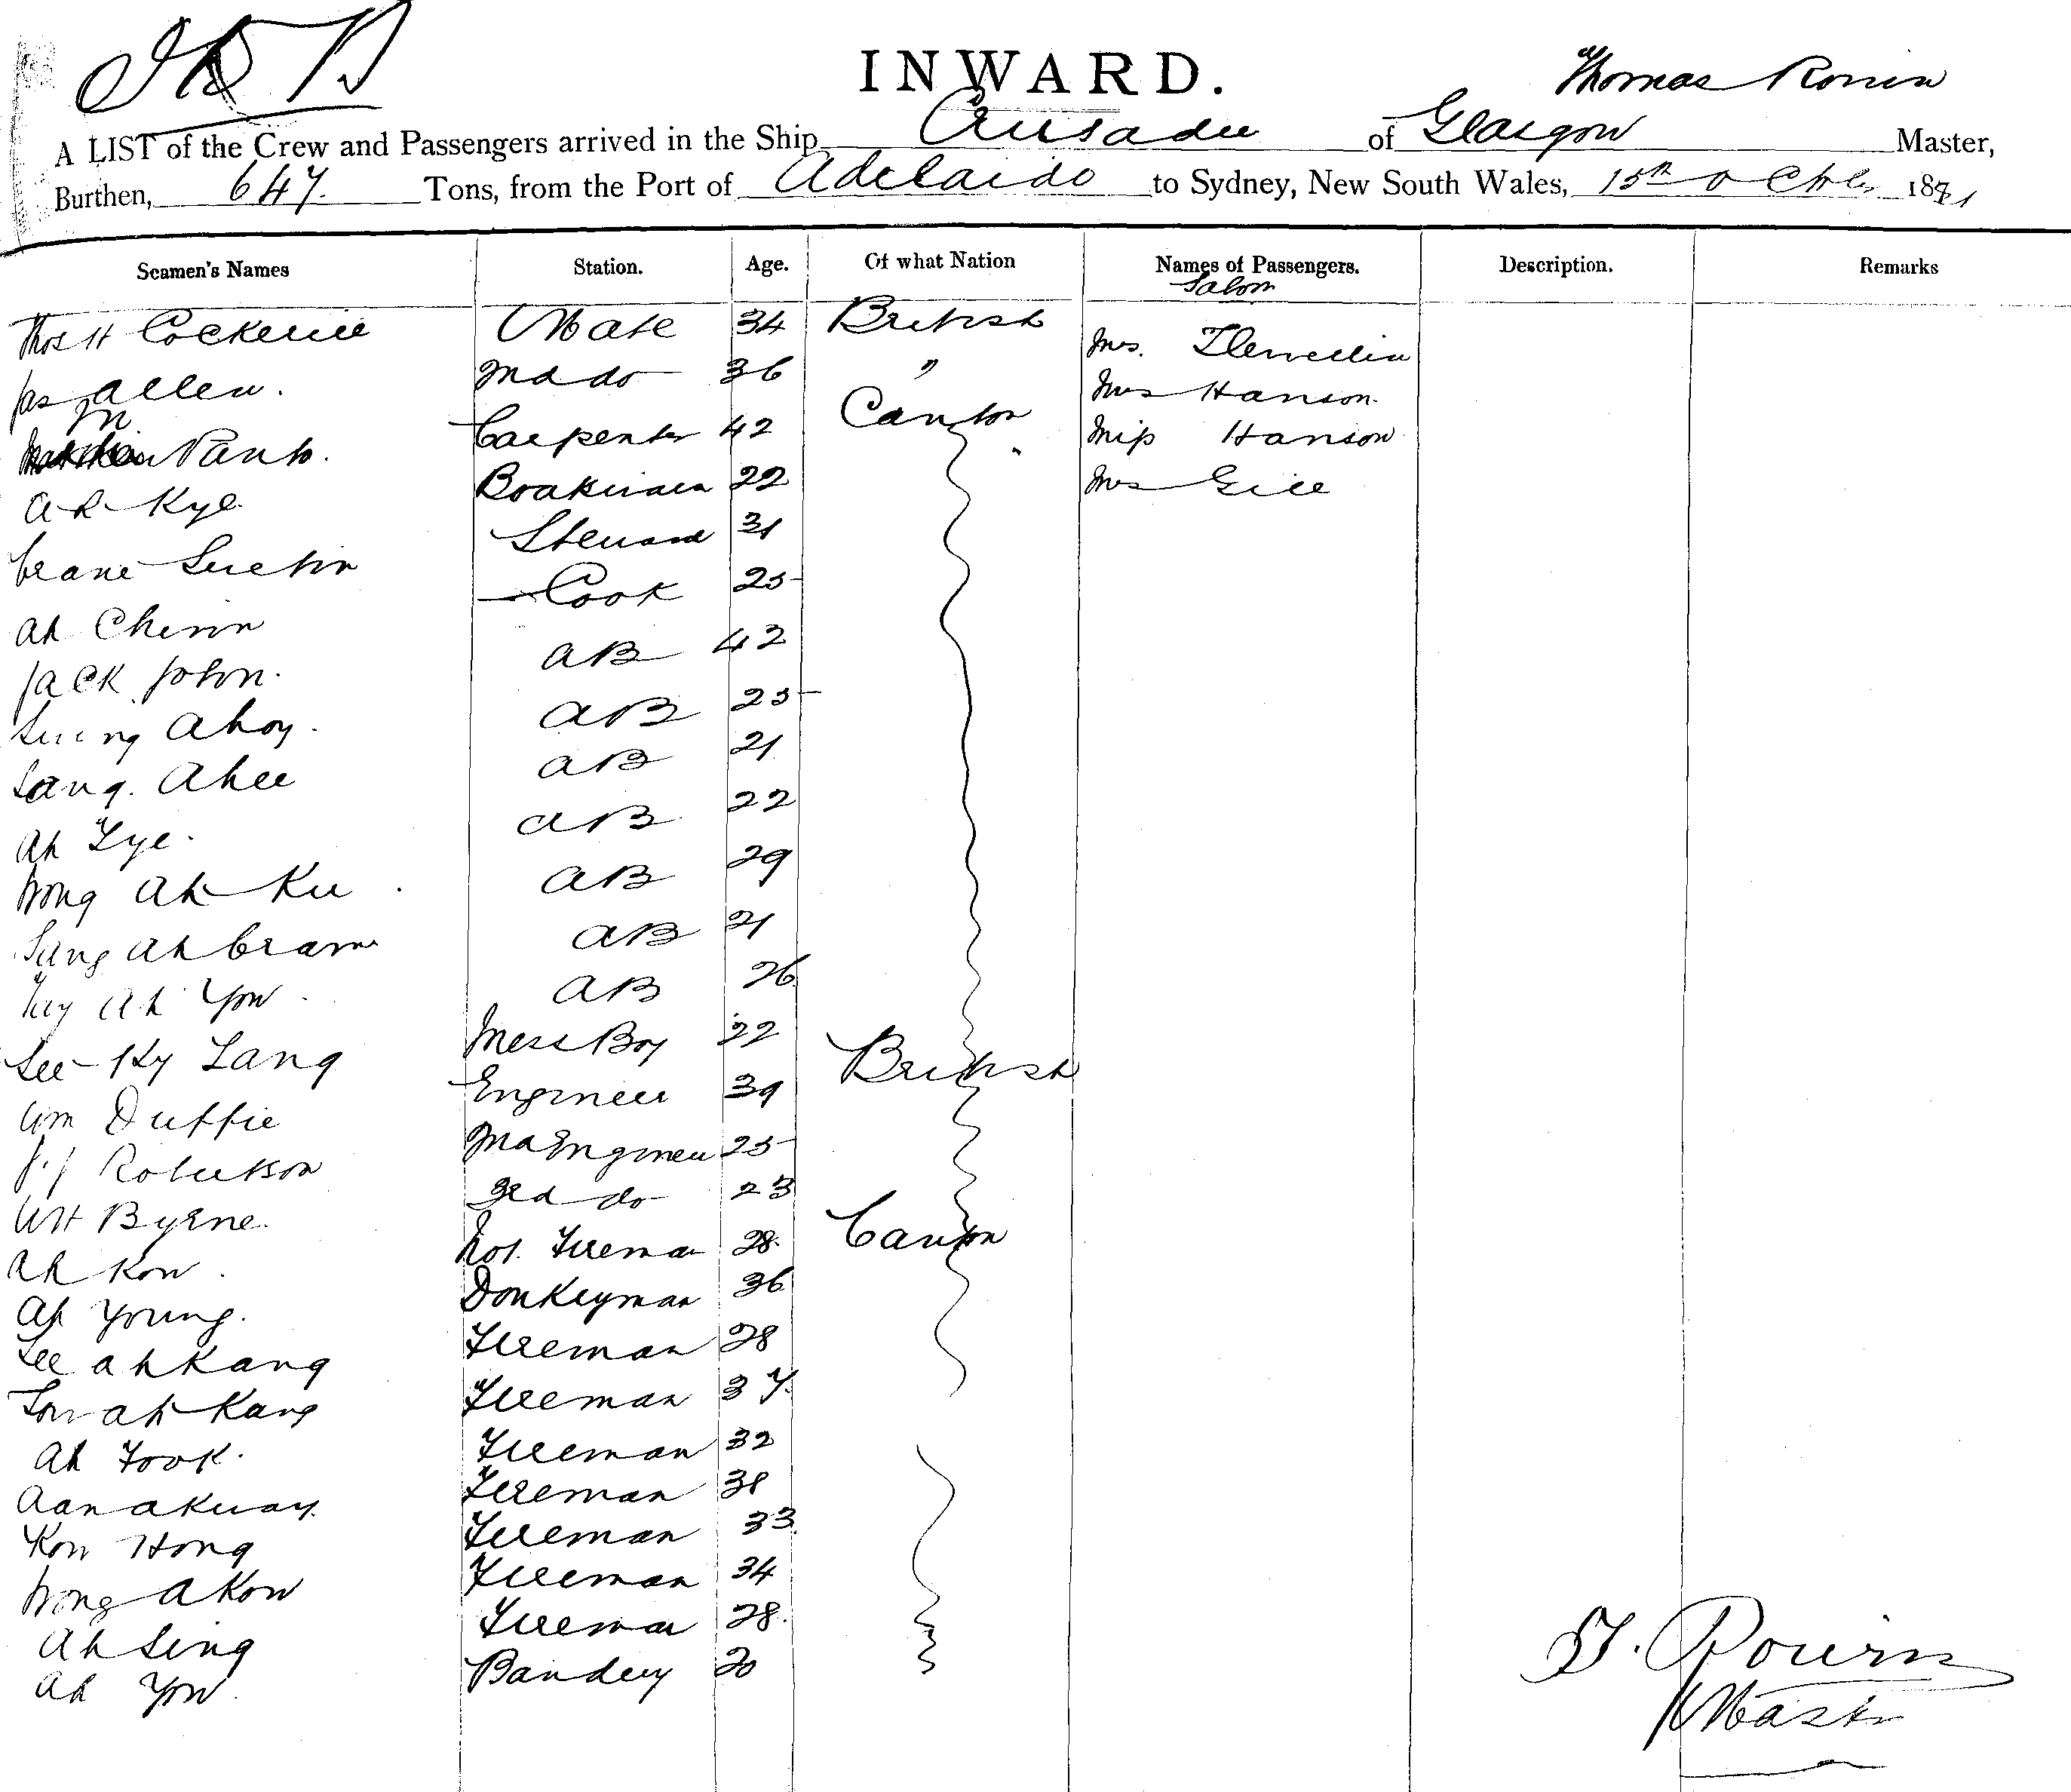 INWARD.
Thomas
A LIST of the Crew and Passengers arrived in the Ship Crusader of Glasgow Master,
Burthen, 647. Tons, from the Port of Adelaide to Sydney, New South Wales, 15th Octbr 1881
Seamen's Names Station. Age. Of what Nation Names of Passengers. Description. Remarks
Saloon
Thos H Cockerill Mate 34 British Mrs. Llewellin
Jas Allen. 2nd do 36 " Mrs Hanson.
Carpenter 42 Canton Miss Hanson
Ah Kye. 22 Mrs Gill
Steward 31
Cook 25
Ah
Jack John. AB 42
Ahoy. AB 25
Sang. Ahee AB 21
Ah Lye. AB 22
Wong Ah Ku AB 29
Ah AB 21
Ah Yow AB 26
See Ky Lang Mess Boy 22
Wm Duffie Engineer 39 British
J.J Robertson 2nd Engineer 25
WH Byrne. 3rd do 23
Ah Kow. No1. Fireman 28. Canton
Ah Young. Donkeyman 36
Lee ah Kang Fireman 28
Low ah Kang Fireman 37.
Ah Fook. Fireman 32
Fireman 38
Kow Hong Fireman 33
Wong A Kow Fireman 34
Ah Sing Fireman 28.
Ah Yow. 20
Master